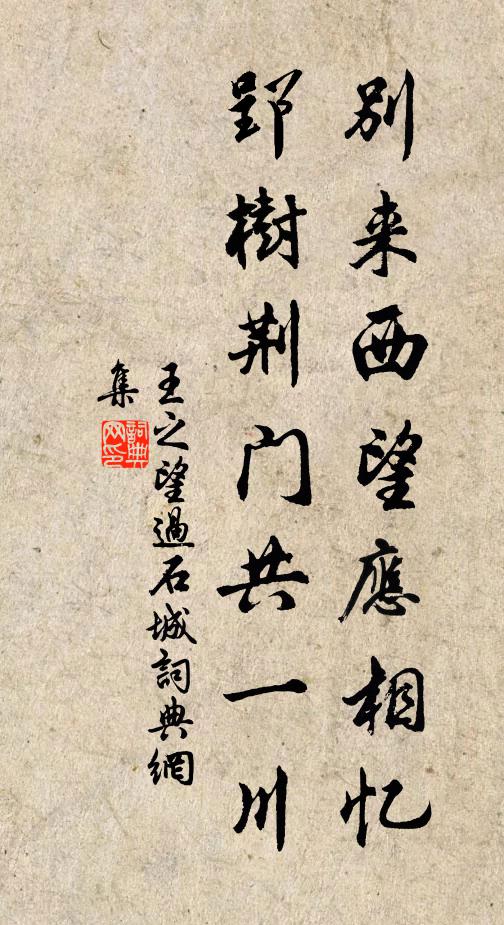 别来西望應相忆
郢樹荆门共一川
王之望過石城詞典網
集
詞典网印